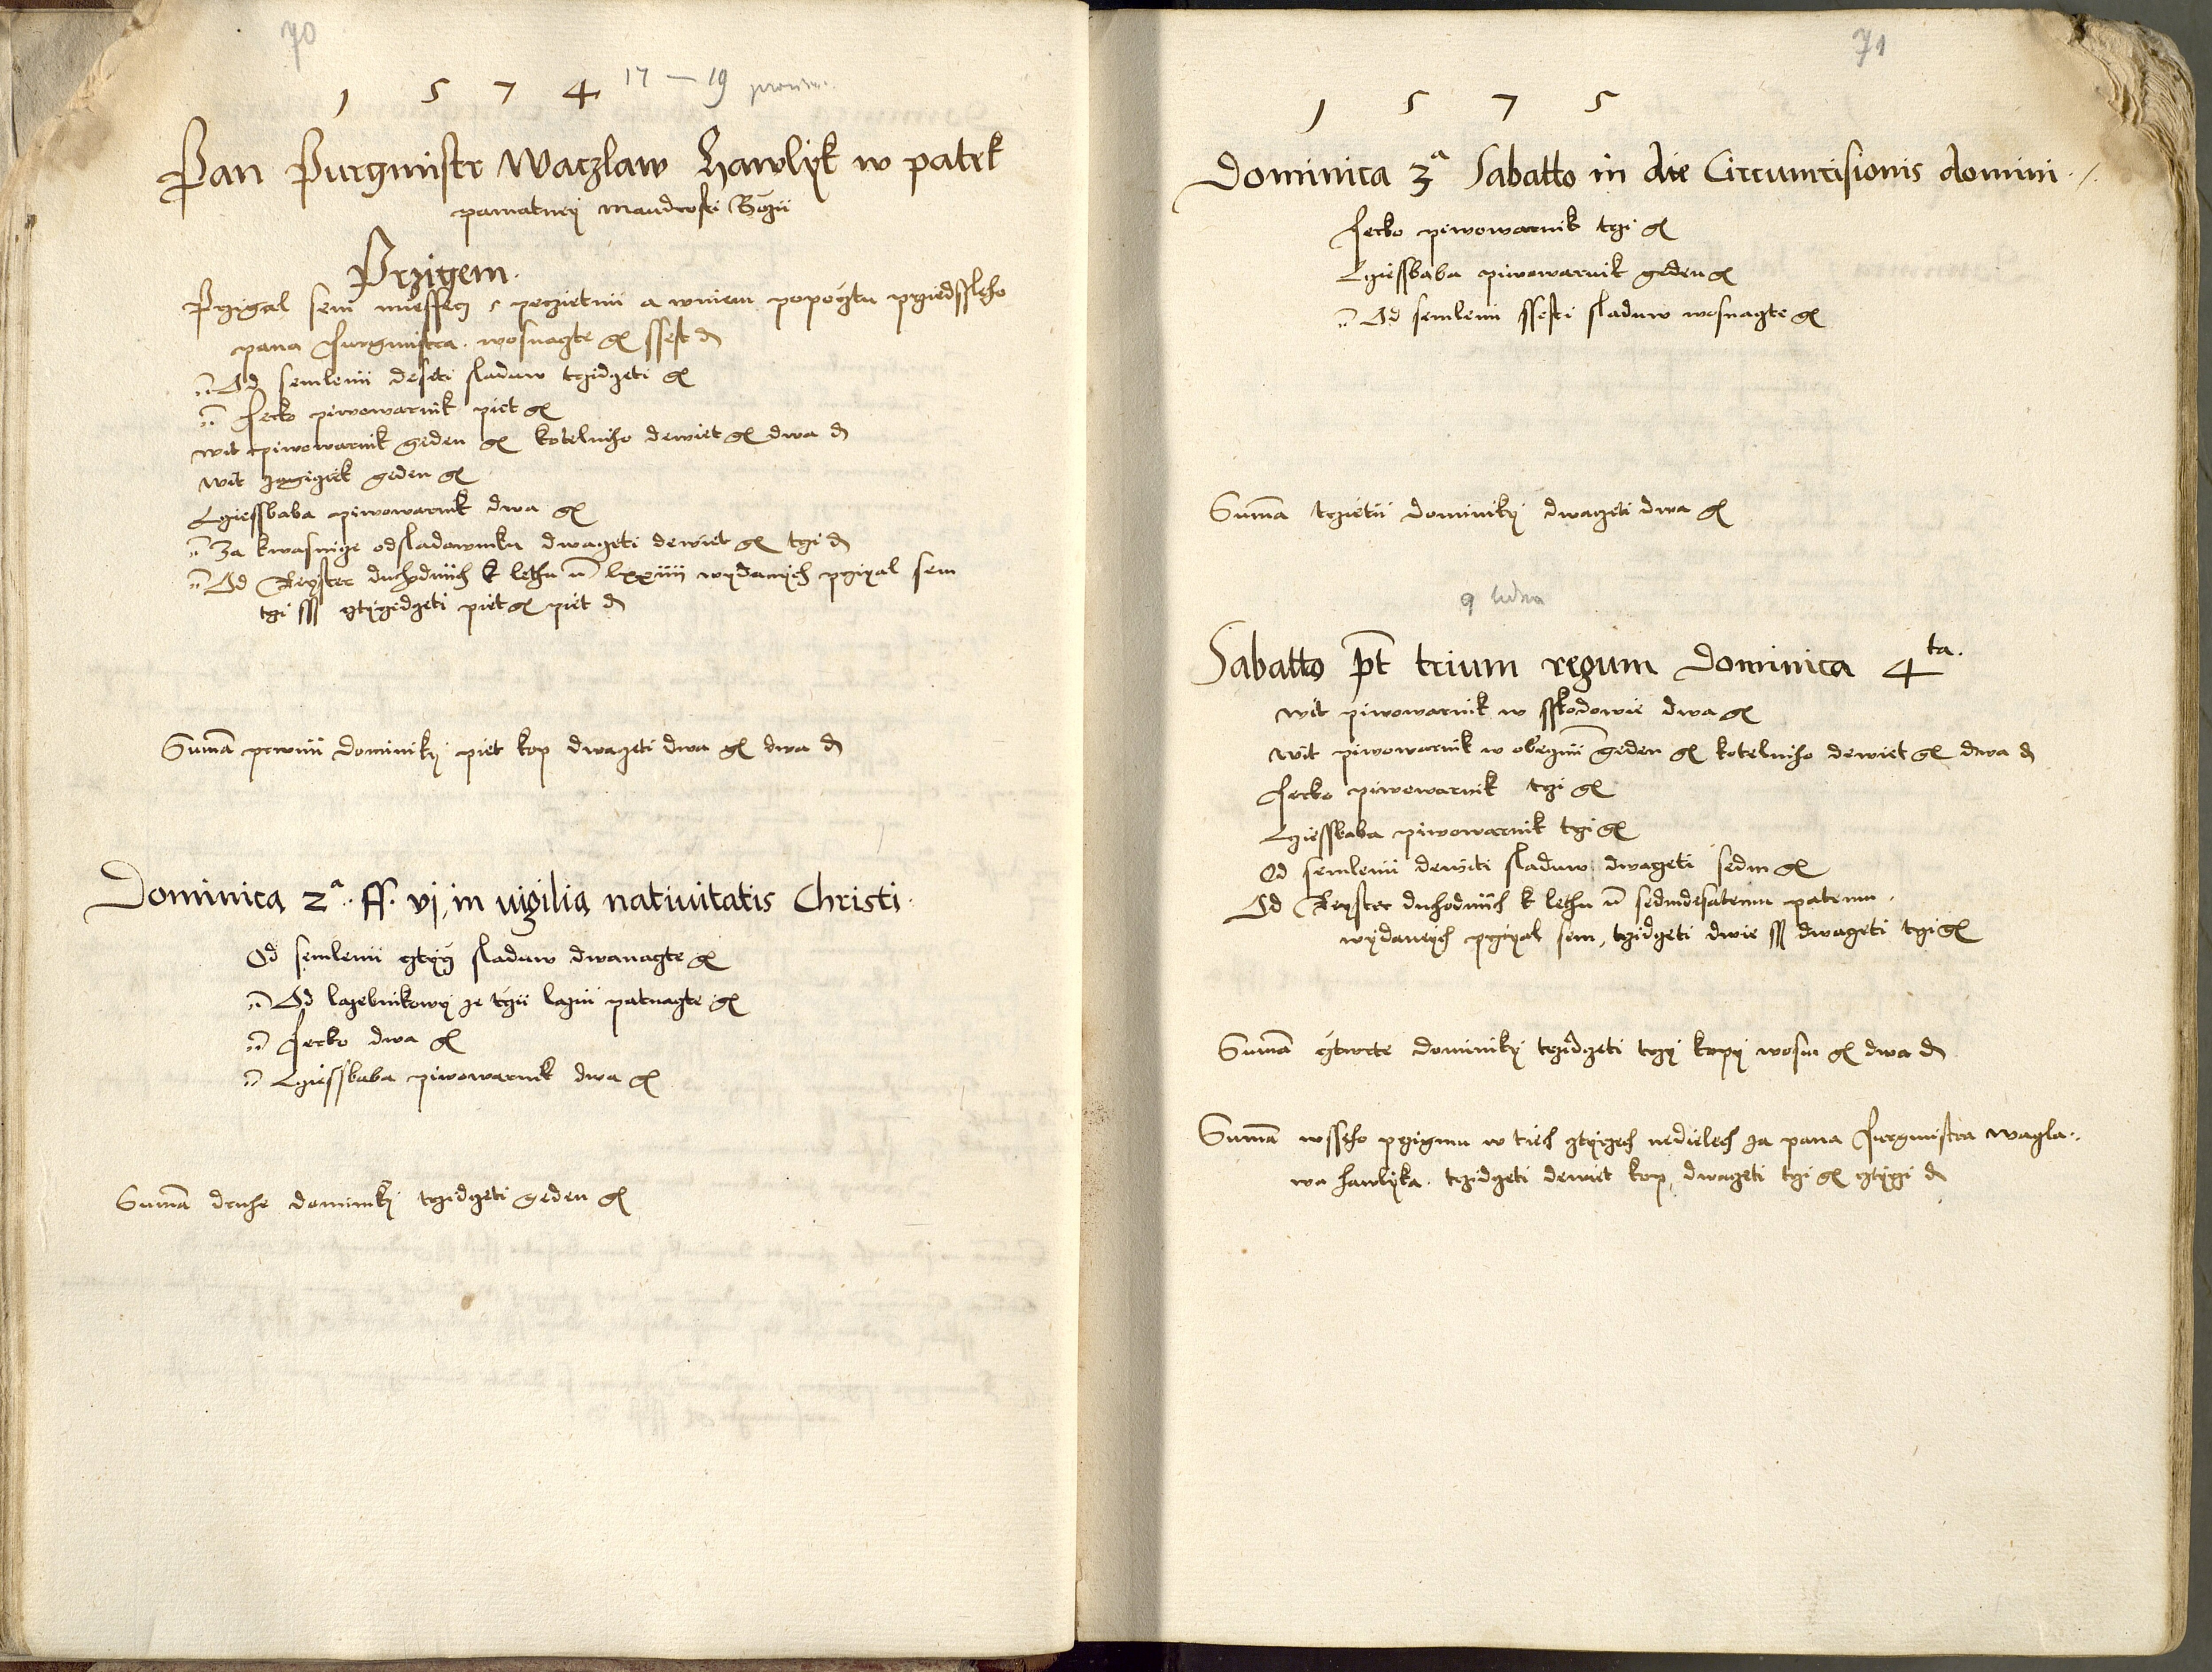 70
1 5 7 4 17 – 19
Pan Purgmistr Waczlaw Hawlyk w patek
pamatney maudrosti Bozii
Przigem.
Przigal sem miessecz s peczietmi a wniem popocztu prziedssleho
pana Purgmistra. wosnagte gr ssest d
Od semlenii deseti sladuw trzidczeti gr
Jecko piwowarnik piet gr
wit piwowarnik geden gr kotelniho dewiet gr dwa d
wit geden gr
Lziessbaba piwowarnik dwa gr
Za kwasnicze odsladowniku dwaczeti dewiet gr trzi d
Od Regster duchodniich k lethu lxxiiii wydanych przigal sem
trzi ss cztyrzidczeti piet gr piet d
Suma prwnii dominiky piet kop dwaczeti dwa gr dwa d
Dominica 2a. ff. vj, in vigilia natiuitatis Christi.
Od semlenii cztyrz sladuw dwanagte gr
Od lazebnikowy ze trzii lazni patnagte gr
Jecko dwa gr
Lziessbaba piwowarnik dwa gr
Suma druhe dominiky trzidczeti geden gr
71
1 5 7 5
Dominica 3a Sabatto in die Circumcisionis domini
Jecko piwowarnik trzi gr
Lziessbaba piwowarnik geden gr
Od semlenii ssesti sladuw wosnagte gr
Suma trzietii dominiky dwaczeti dwa gr
9 ledna
Sabatto pt trium regum Dominica 4ta.
wit piwowarnik w sskodowie dwa gr
wit piwowarnik w obeczni geden gr kotelniho dewiet gr dwa d
Jecko piwowarnik trzi gr
Lziessbaba piwowarnik trzi gr
Od semlenii dewieti sladuw dwaczeti sedm gr
Od Regster duchodniich k lethu sedmdesatemu patemu.
wydanych przigal sem, trzidczeti dwie ss dwaczeti trzi gr
Suma cztwrte dominiky trzidczeti trzy kopy wosm gr dwa d
Suma wsseho przigmu w tiech cztyrzech nedielech za pana Purgmistra wacla
wa hawlyka. trzidczeti dewiet kop, dwaczeti trzi gr cztyrzi d